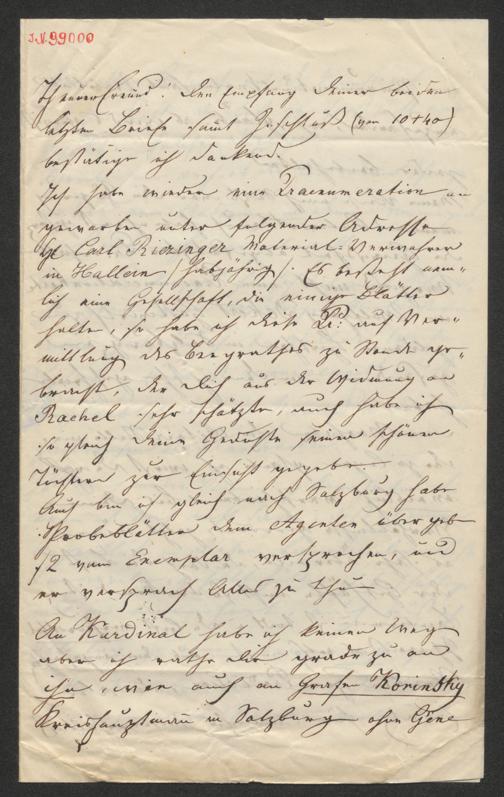 I.N. 99000
Theurer Freund! Den Empfang Deiner beiden
letzten Briefe samt Zuschluß (von 10 + 40)
bestätige ich dankend.
Ich habe wieder eine Praenumeration an
geworben unter folgender Adresse
Carl Riezinger Material-Verwahrer
in Hallein /:halbjährig:/. Es besteht nem-
lich eine Gesellschaft, die einige Blätter
halten, so habe ich diese Pr: auf Ver-
mittlung des Bergrathes zu Stande ge-
bracht, der Dich aus der Widmung an
Rachel sehr schätzte, auch habe ich
sogleich Deine Gedichte seinen schönen
Töchtern zur Einsicht gegeben.
Auch bin ich gleich nach Salzburg habe
Probeblätter dem Agenten übergeb
f2 vom Exemplar versprochen, und
er versprach Alles zu thun
An Kardinal habe ich keinen Weg
aber ich rathe Dir gradezu an
ihn, wie auch an Grafen Korinsky
Kreishauptmann in Salzburg ohne Gene